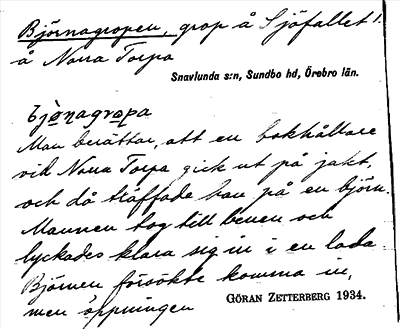 Björnagropen, grop å Sjöfallet 1.
å Norra Torpa
Snavlunda s:n, Sundbo hd, Örebro län.
Man berättar, att en bokhållare
vid Norra Torpa gick ut på jakt,
och då träffade han på en björn.
Mannen tog till benen och
lyckades klara sig in i en lada.
Björnen försökte komma in,
men öppningen
GÖRAN ZETTERBERG 1934.